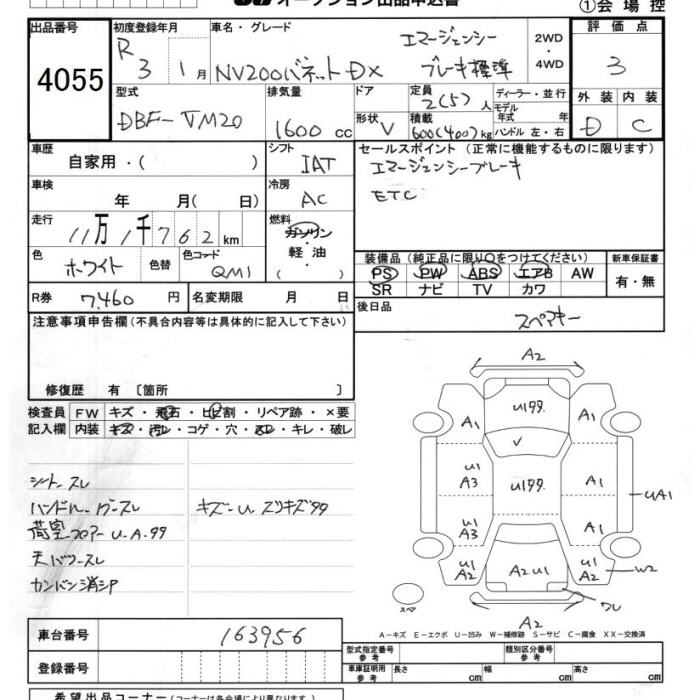 オークション出品申込書
①会場控
出品番号
4055
初度登録年月
R 3 1月
車名・グレード
NV200バネットDX
エマージェンシー
ブレーキ標準
2WD
・
4WD
評価点
3
型式
DBF-VM20
排気量
1600 cc
ドア
形状 V
定員
2(5)人
積載
600(400)kg
ディーラー・並行
モデル
年式 年
ハンドル 左・右
外装 内装
D C
車歴
自家用・( )
シフト
IAT
セールスポイント (正常に機能するものに限ります)
エマージェンシーブレーキ
ETC
車検
年 月( 日)
冷房
AC
走行
11万1千762km
燃料
ガソリン
・
軽油
( )
色
ホワイト
色替
色コード
QM1
装備品 (純正品に限り○をつけてください)
PS PW ABS エアB AW
SR ナビ TV カワ
新車保証書
有・無
R券 7,460 円
名変期限 月 日
後日品
スペアキー
注意事項申告欄(不具合内容等は具体的に記入して下さい)
修復歴 有 〔箇所 〕
検査員
記入欄
FW キズ・飛石・ヒビ割・リペア跡・×要
内装 キズ・汚レ・コゲ・穴・スレ・キレ・破レ
シートスレ
ハンドル
キズーU
荷室フロアーU.A.99
カンバン消シP
A2
U199
A1 A1
V
U1
A3
U199
A1
UA1
U1
A3
A1
U1
A2
A2U1
U1
A2
W2
スペア
A2
A－キズ E－エクボ U－凹み W－補修跡 S－サビ C－腐食 XX－交換済
車台番号
163956
登録番号
型式指定番号
参考
類別区分番号
参考
車庫証明用
参考
長さ cm 幅 cm 高さ cm
希望出品コーナー(コーナーは各会場により異なります)